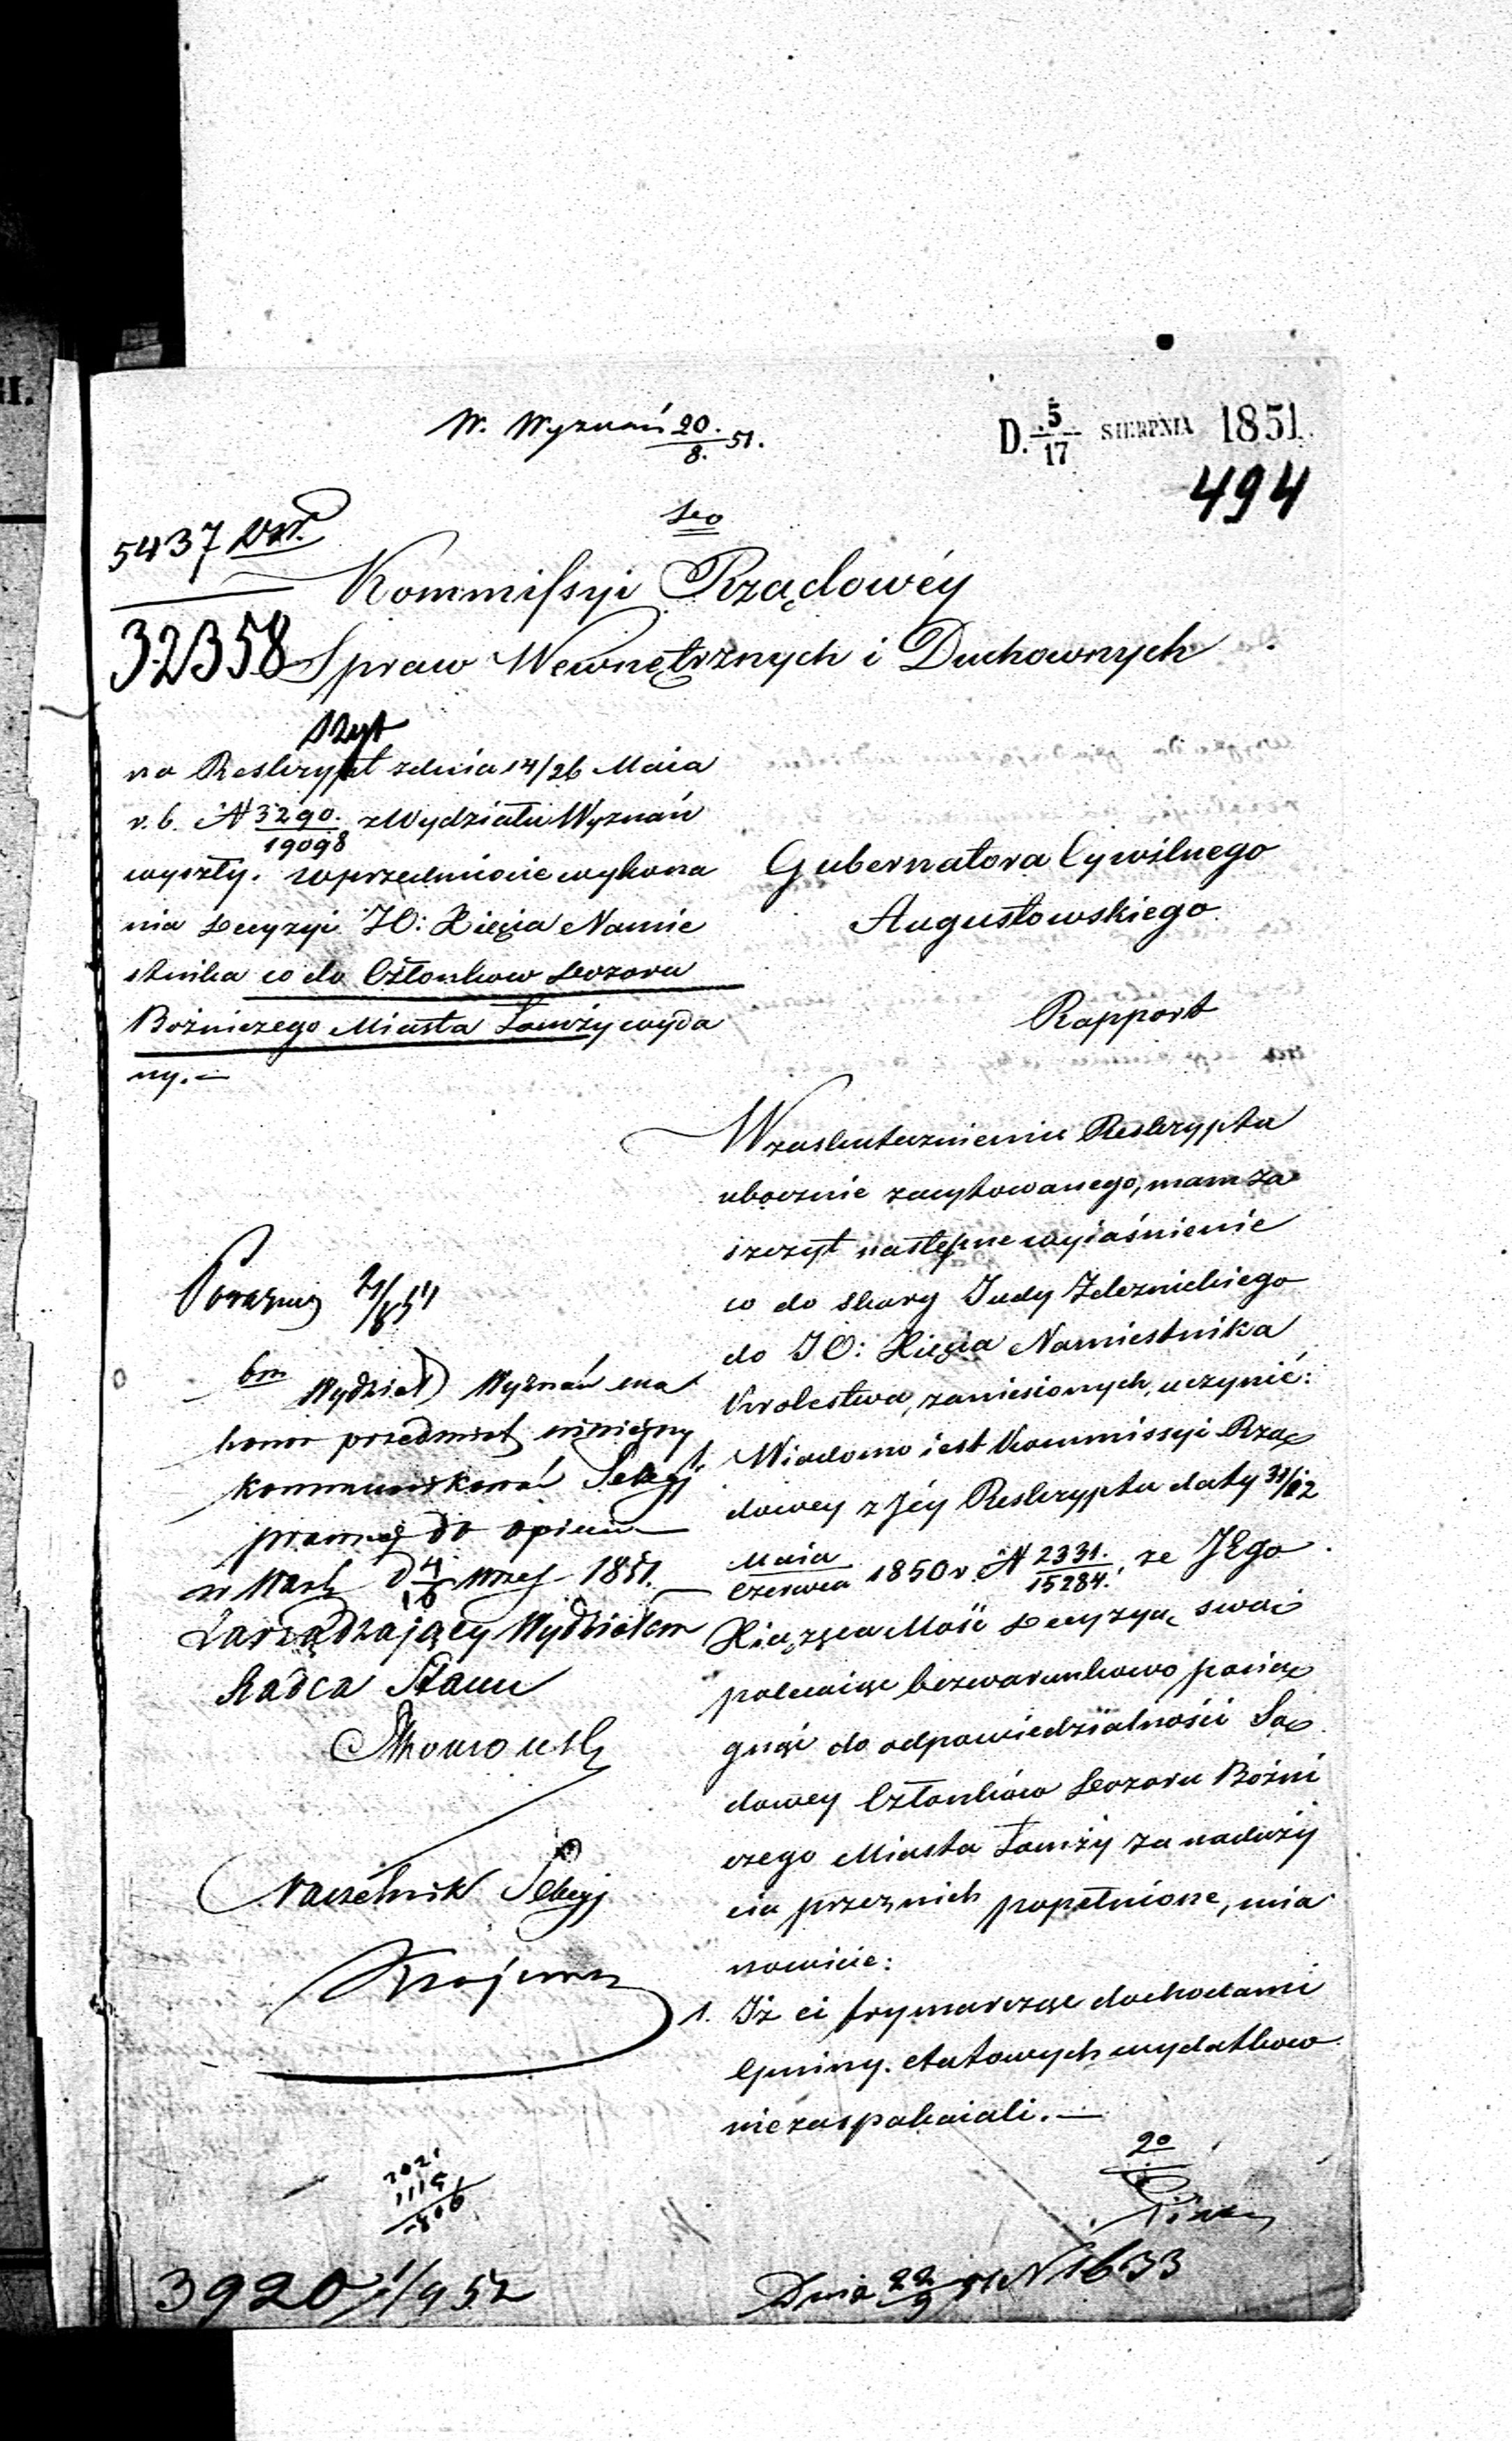 W. Wyznań 20./8. 51.
D. 5/17 SIERPNIA 1851.
494
5437
32358
Do
Kommissyi Rządowéy
Spraw Wewnętrznych i Duchownych
na Reskrypt z dnia 14/26 Maia
r. b. N 3290./19098 z Wydziału Wyznań
wyszły. w przedmiocie wykona
nia Decyzyi JO: Xięcia Namie
stnika co do Członkow Dozoru
Bożniczego Miasta Łomży wyda
ny. —
Gubernatora Cywilnego
Augustowskiego
Rapport
W zaskutecznieniu Reskryptu
ubocznie zacytowanego, mam za
szczyt następne wyiaśnienie
co do skarg Judy Zeleznickiego
do JO: Xięcia Namiestnika
Krolestwa, zaniesionych, uczynić:
Wiadomo iest Kommissyi Rzą
dowey z Jéy Reskryptu daty 31/12
Maia/Czerwca 1850 r. N 2331./15284. że JEgo
Xiążęca Mość Decyzyą swoią
polecaiąc bezwarunkowo pocią
gnąć do odpowiedzialności Są
dowey Członków Dozoru Bożni
czego Miasta Łomży za naduży
cia przez nich popełnione, mia
nowicie:
1. Iż ci frymarcząc dochodami
Gminy. etatowych wydatkow
niezaspakaiali. —
Wydział Wyznań ma
honor przedmiot niniejszy
kommunikować Sekcyi
prawnej do opinii —
w Warsz d 4/16 Wrześ 1851. —
Zarządzający Wydziałem
Radca Stanu
Naczelnik Sekcyi
2021
1115
3920 1/9 52
Dnia 22/9 51 N 1633